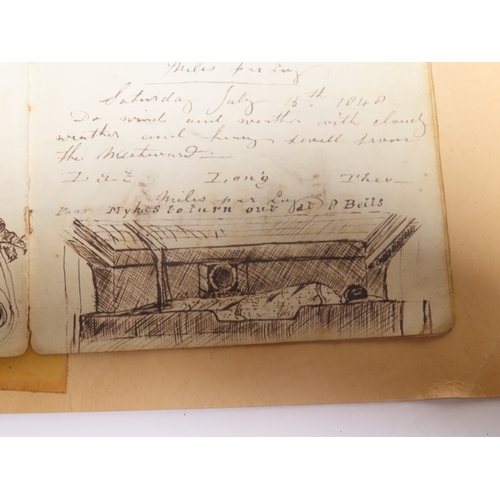 Miles per Log
Saturday July 15th 1848
Do wind and weather with cloudy
weather and heavy swell from
the Westward
Lat Long Ther
Miles per Log
Poor Mykes to turn out at 8 Bells